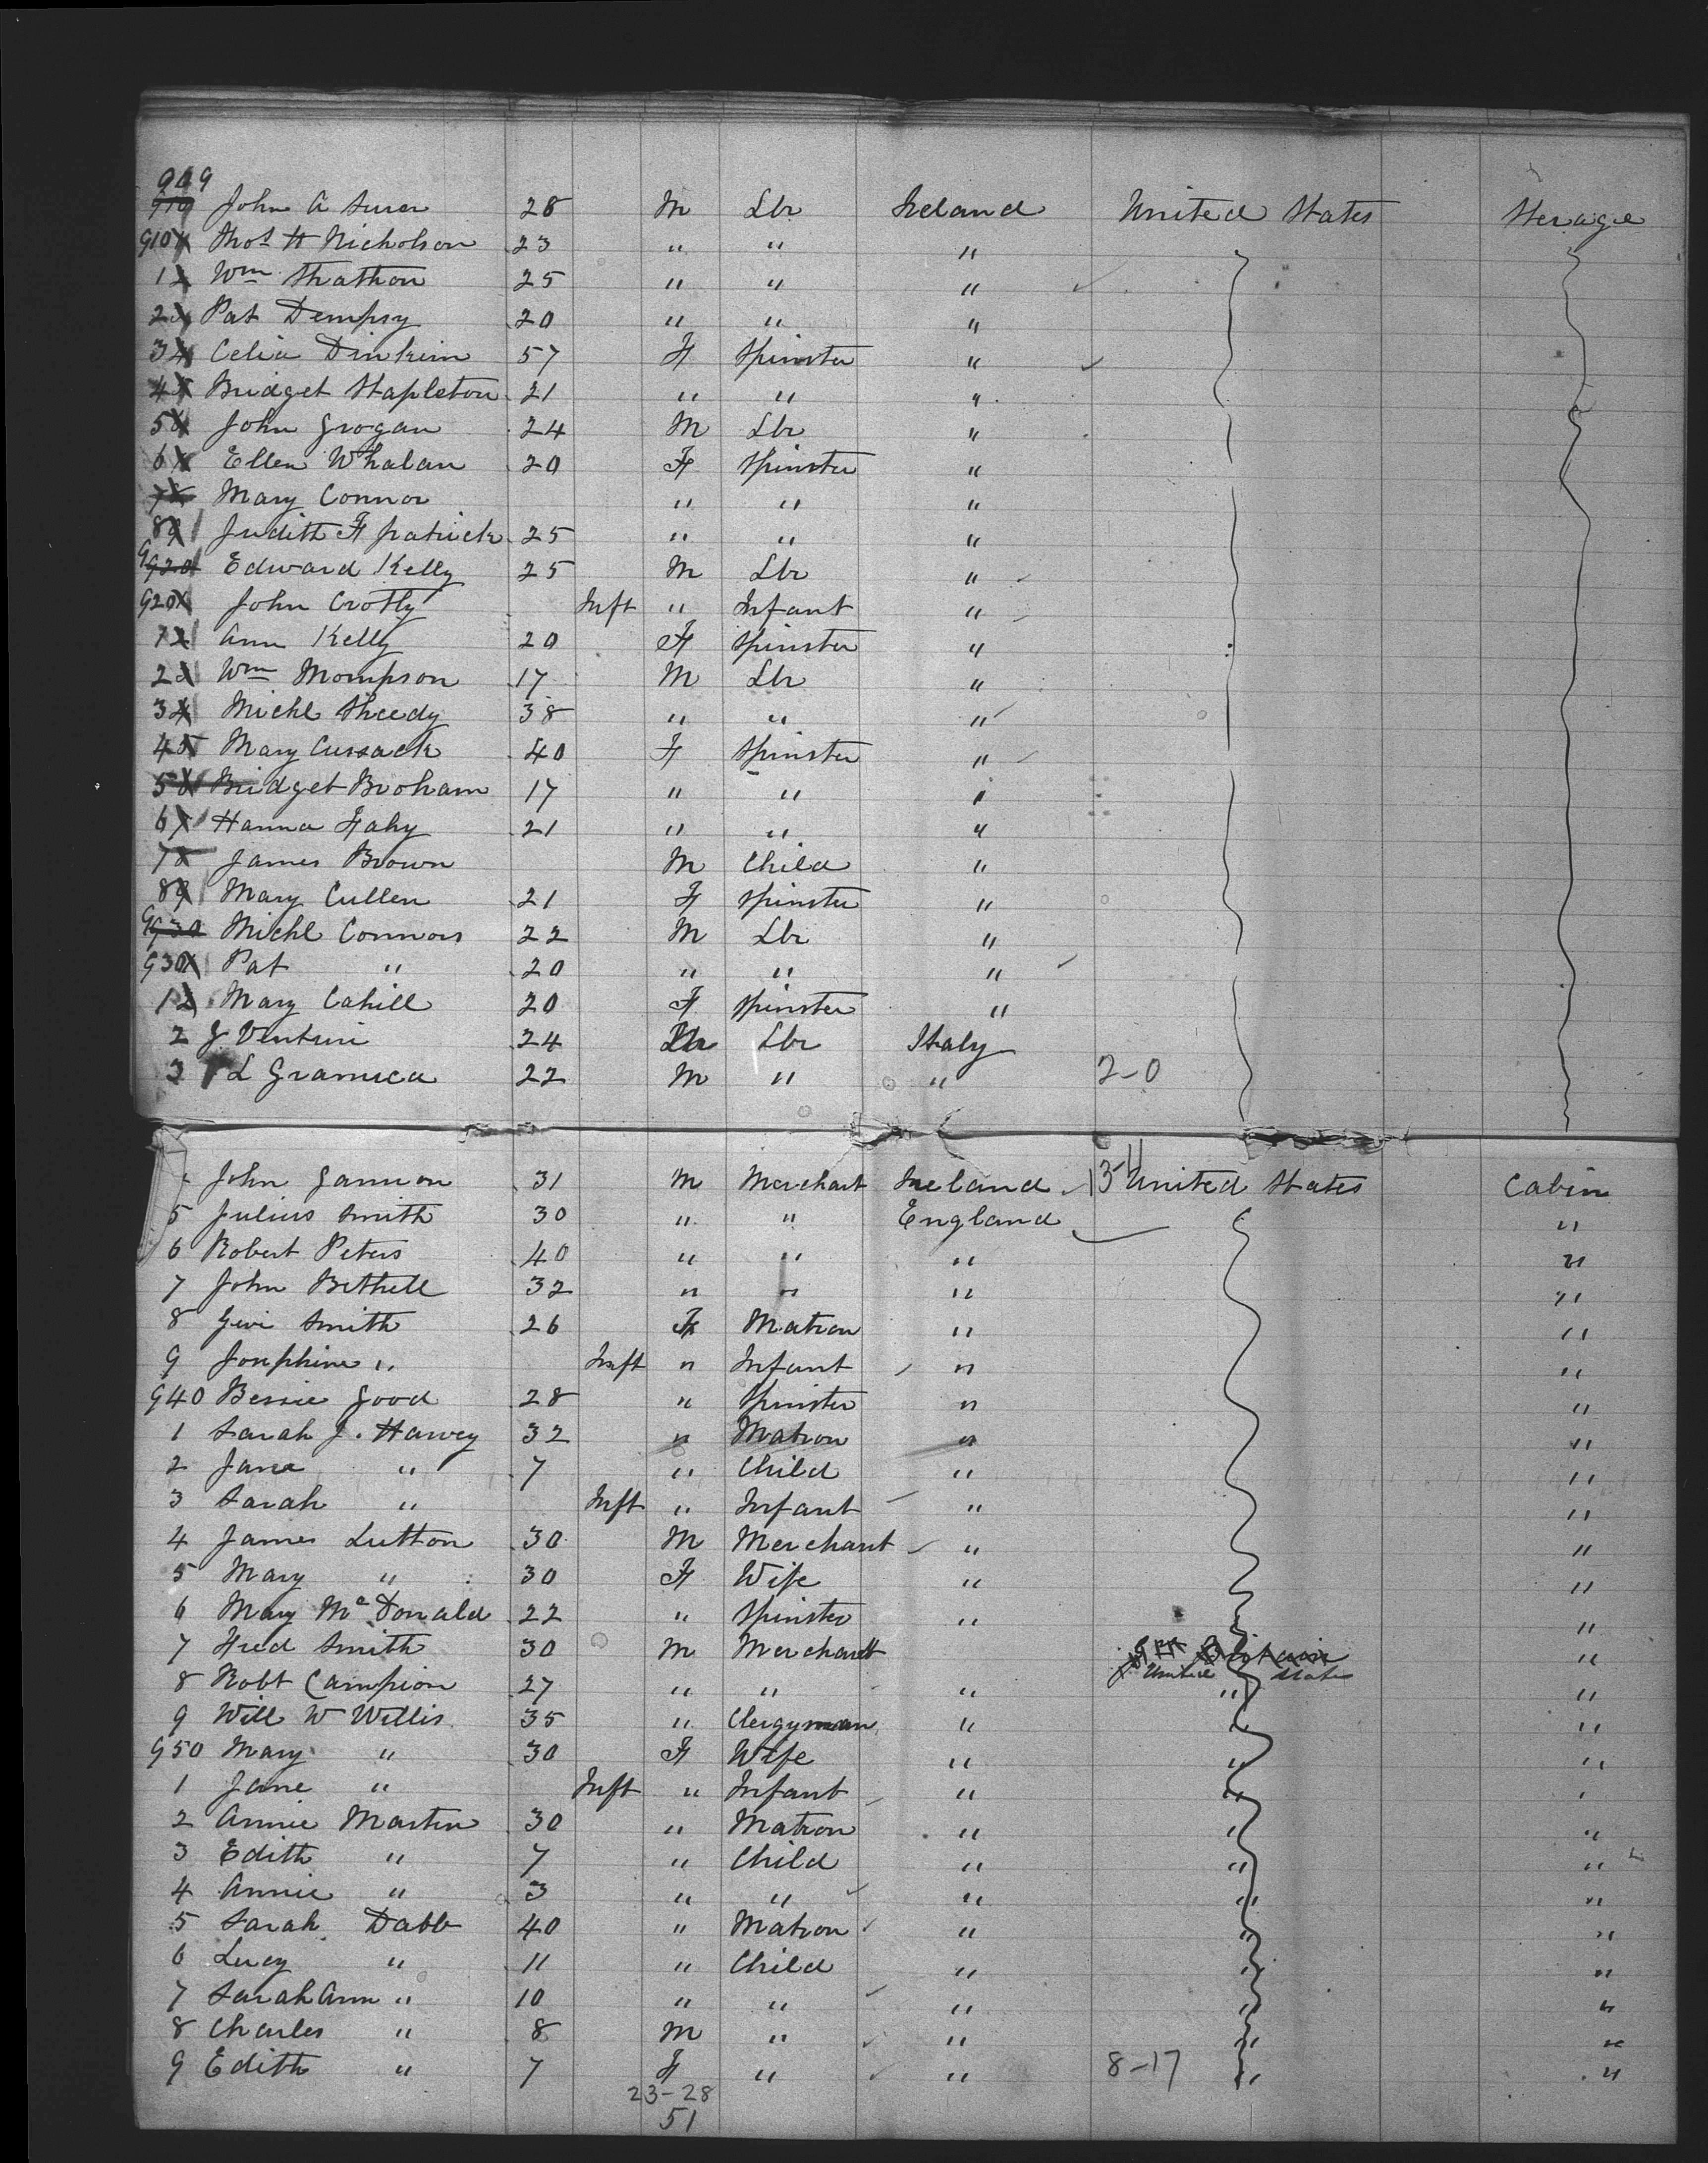 909
John A 28 M Lbr Ireland United States Sterage
910 Thos H Nicholson 23 " " "
1 Wm Strathon 25 " " "
2 Pat Dempsy 20 " " "
3 Celia Dinkin 57 F Spinster "
4 Bridget Stapleton 21 " " "
5 John Grogan 24 M Lbr "
6 Ellen Whalan 20 F Spinster "
7 Mary Connor " " "
8 Judith F patrick 25 " " "
9 Edward Kelly 25 M Lbr "
920 John Crotty Inft " Infant "
1 Ann Kelly 20 F Spinster "
2 Wm Thompson 17 M Lbr "
3 Michl Sheedy 38 " " "
4 Mary Cussack 40 F Spinster "
5 Bridget Broham 17 " " "
6 Hanna Fahy 21 " " "
7 James Brown M Child "
8 Mary Cullen 21 F Spinster "
9 Michl Connors 22 M Lbr "
930 Pat " 20 " " "
1 Mary Cahill 20 F Spinster "
2 J Venturi 24 Lbr Italy
3 L Gramica 22 M " " 2-0
John Gannon 31 M Merchant Ireland 13-11 United States Cabin
5 Julius Smith 30 " " England "
6 Robert Peters 40 " " " "
7 John Bethell 32 " " " "
8 Smith 26 F Matron " "
9 Josephine " Inft " Infant " "
940 Bessie Good 28 " Spinster " "
1 Sarah J. Harvey 32 " Matron " "
2 Jane " 7 " Child " "
3 Sarah " Inft " Infant " "
4 James Lutton 30 M Merchant " "
5 Mary " 30 F Wife " "
6 Mary McDonald 22 " Spinster " "
7 Fred Smith 30 M Merchant Gt Britain "
United States
8 Robt Campion 27 " " " " "
9 Will W Willis 35 " Clergyman " " "
950 Mary " 30 F Wife " " "
1 Jane " Inft " Infant " " "
2 Annie Martin 30 " Matron " " "
3 Edith " 7 " Child " " "
4 Annie " 3 " " " " "
5 Sarah Dabb 40 " Matron " " "
6 Lucy " 11 " Child " " "
7 Sarah Ann " 10 " " " " "
8 Charles " 8 M " " " "
9 Edith " 7 F " " 8-17 " "
23-28
51